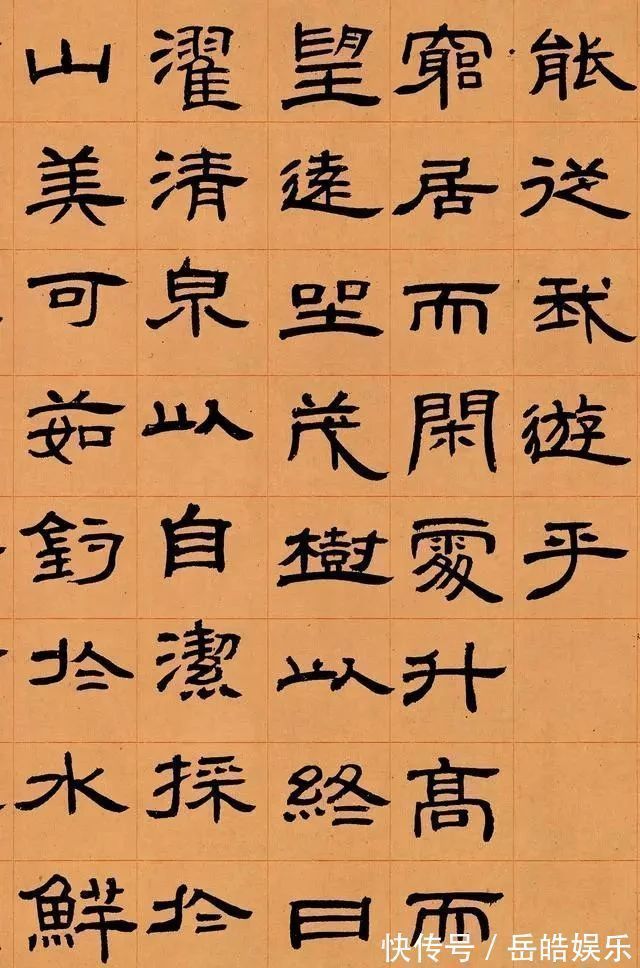 能從我遊乎
窮居而閑處升高而
望遠坐茂樹以終日
濯清泉以自潔採於
山美可茹釣於水鮮
快传号 / 岳皓娱乐